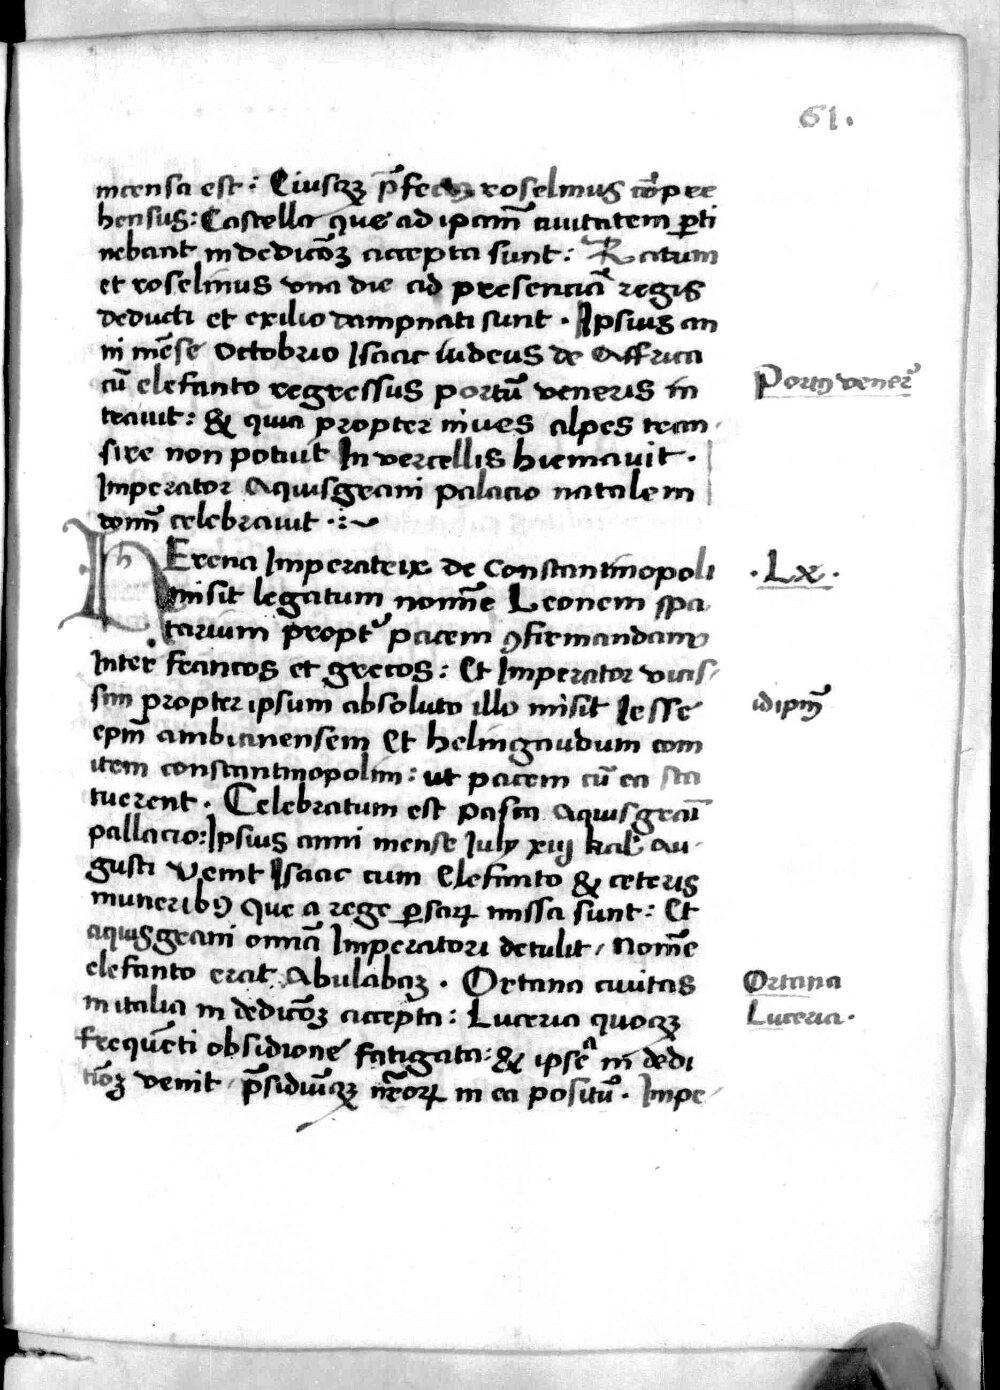 61.
incensa est: Ciusqꝫ p̄fectꝰ roselmus cōpre
hensus: Castella que ad ipam̄ ciuitatem ꝑti
nebant in dedicōꝫ accepta sunt: Ratum
et roselinus vna die ad presenciā regis
deducti et exilio dampnati sunt. Ipsius an
ni mēse Octobrio Isaac iudeus de Affrica
cū elefanto regressus portū veneris in
trauit: & quia propter niues alpes tran
sire non potuit In vercellis hiemauit.
Imperator Aquisgrani palacio natalem
domī celebrauit.
Portꝰ venerꝭ
HErena Imperatrix de Constantinopoli
misit legatum nomīe Leonem spa
tarium propt᷑ pacem ꝯfirmandam
Inter francos et grecos: Et Imperator vicis
sim propter ipsum absoluto illo misit Iesse
epm̄ ambianensem Et helingaudum com
item constantinopolim: ut pacem cū ea sta
tuerent. Celebratum est pasca Aquisgrāi
pallacio: Ipsius anni mense July xiij kal' Au
gusti venit Isaac cum Elefanto & ceteris
muneribꝰ que a rege ꝑsaꝝ missa sunt: Et
aquisgrani omīa Imperatori detulit, Nomē
elefanto erat Abulabaꝫ. Ortana ciuitas
in italia in dedicōꝫ accepta: Luceria quoqꝫ
frequēti obsidione fatigata: & ipsa in dedi
ciōꝫ venit, p̄sidiūqꝫ nr̄oꝝ in ea positū. Impe
.Lx.
idipm̄
Ortana
Luceria.